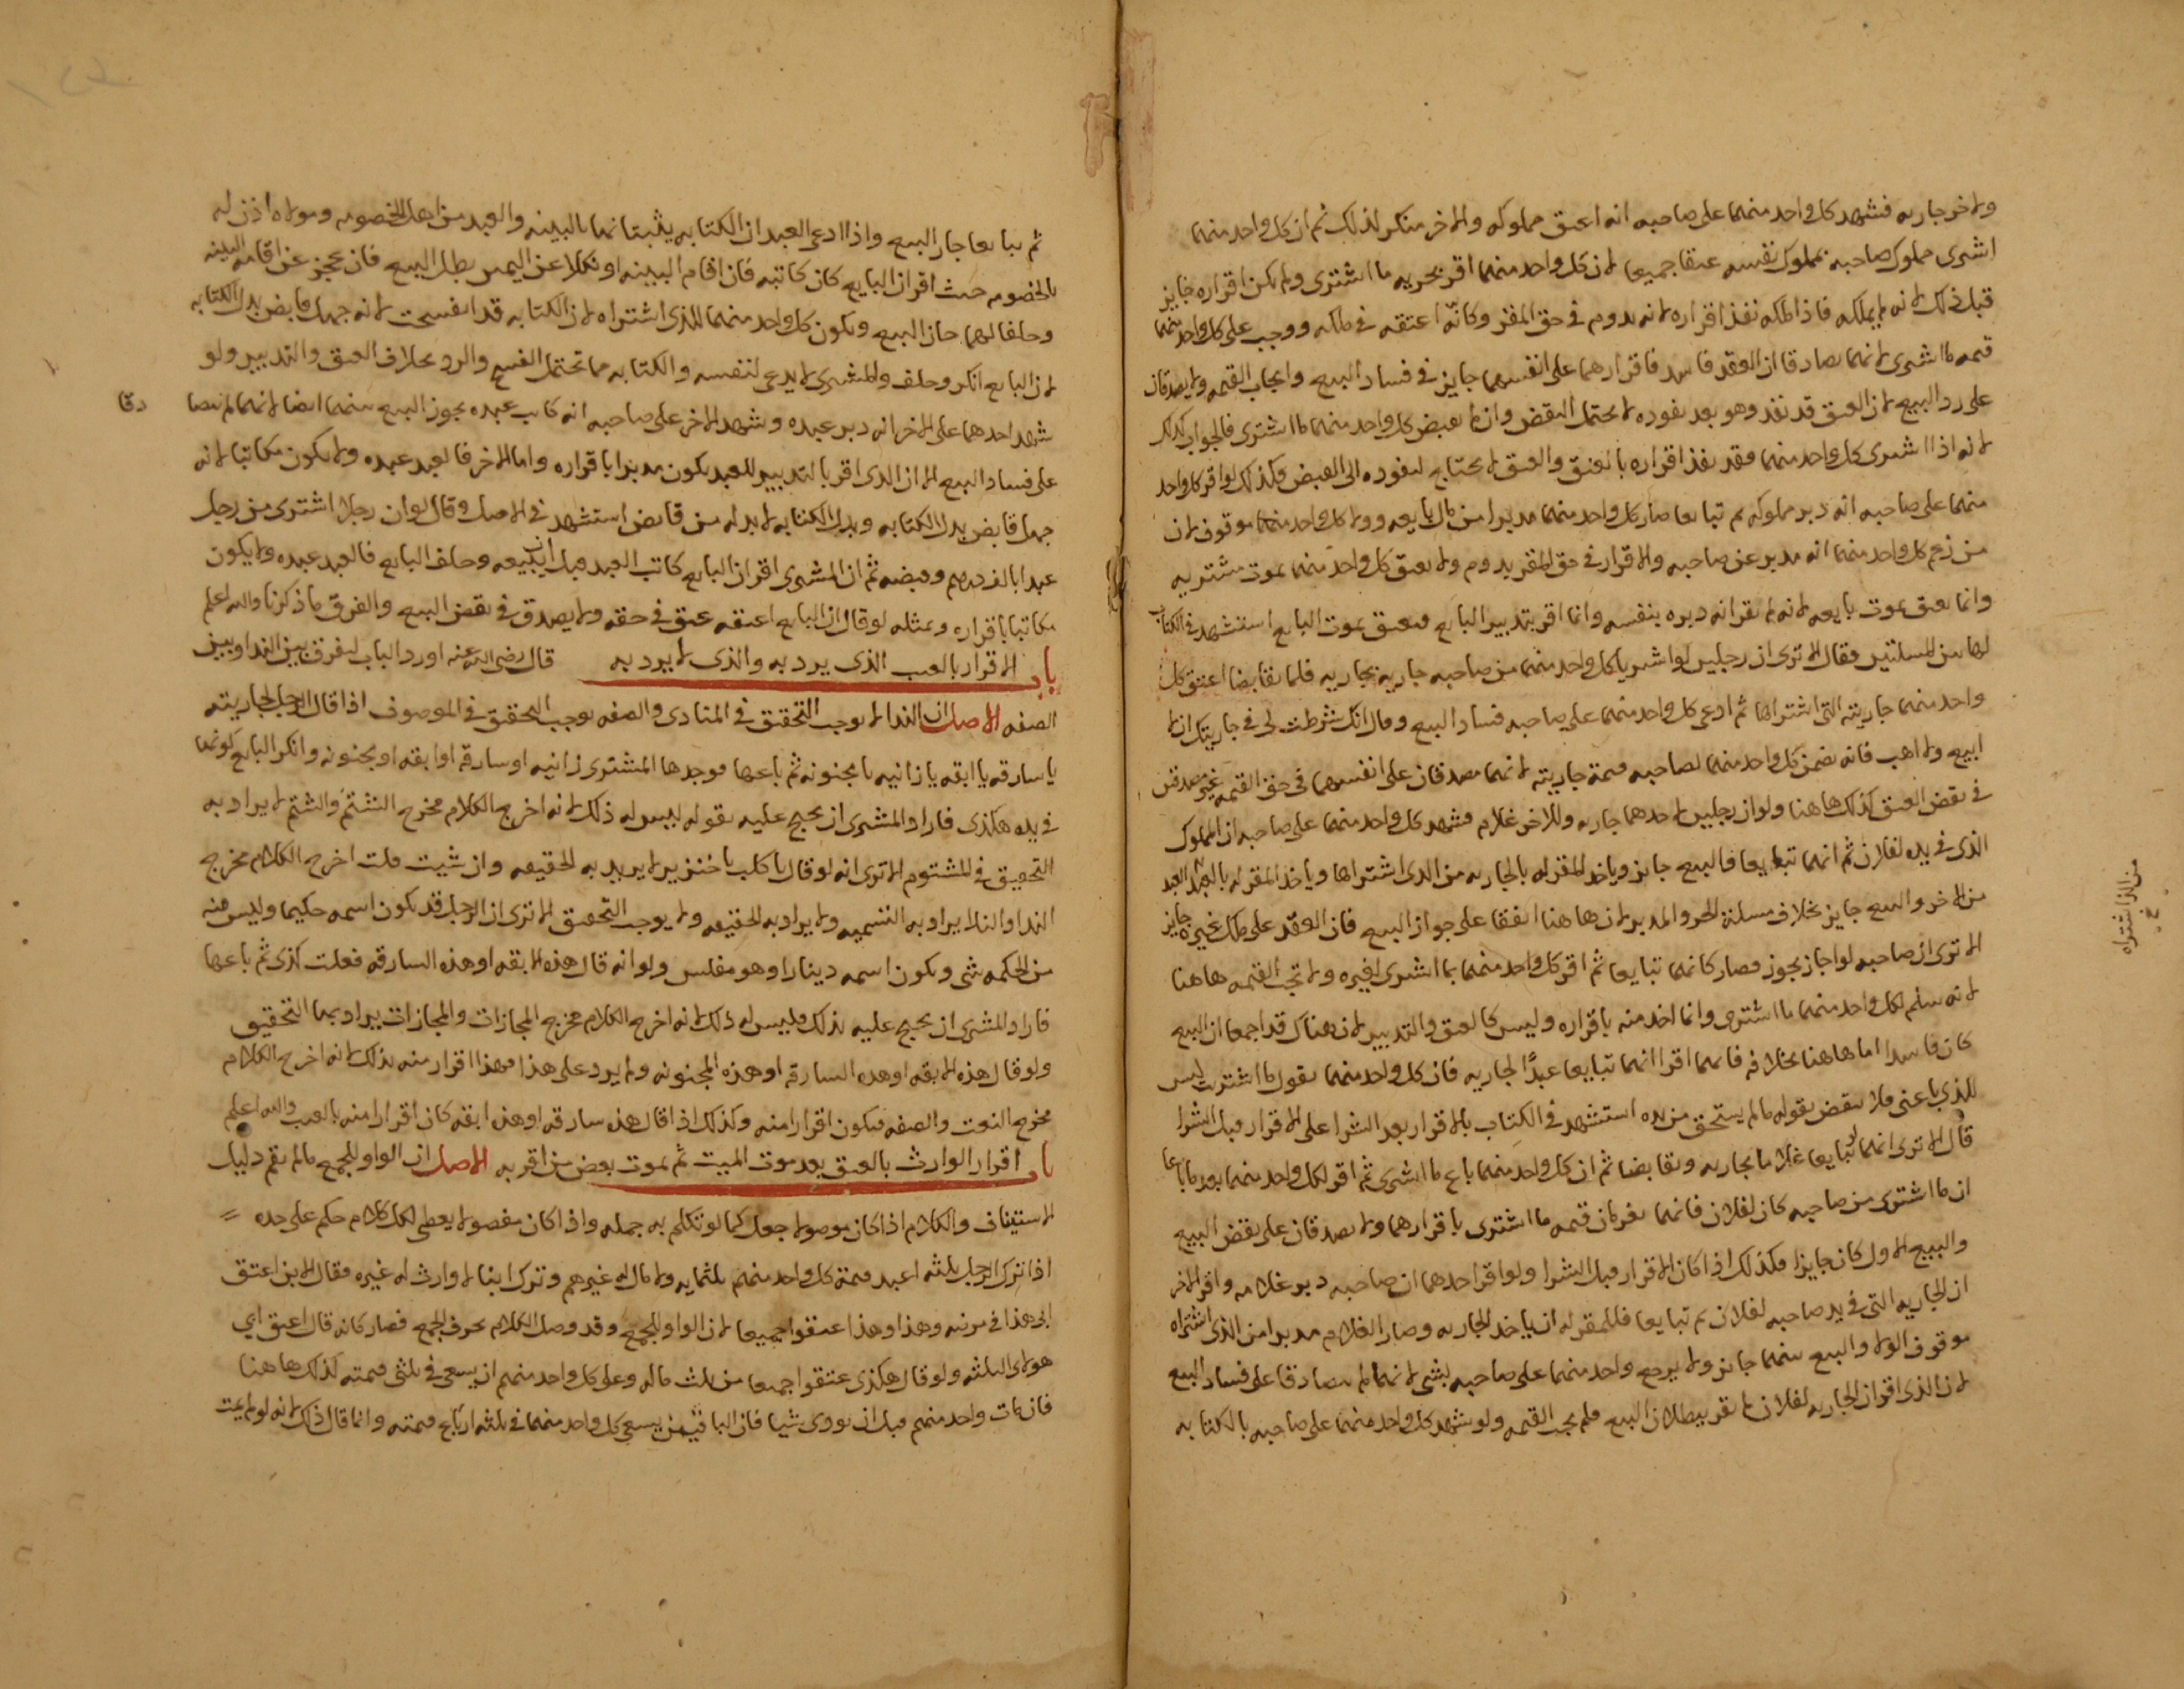 ولاخر جاريه فشهد كل واحد منهما على صاحبه انه اعتق مملوكه والاخر منكر لذلك ثم ان كل واحد منهما
اشترى مملوك صاحبه بمملوك نفسه عتقا جميعا لان كل واحد منهما اقر بحريه ما اشترى ولم يكن اقراره جايز
قبل ذلك لانه لم يملكه فاذا ملكه نفذ اقراره لانه يدوم في حق المقر وكانه اعتقه في ملكه ووجب على كل واحد منهما
قيمه ما اشترى لانهما تصادقا ان العقد فاسد فاقرارهما على انفسهما جايز في فساد البيع وايجاب القيمه ولا يصدقان
على رد البيع لان العتق قد نفذ وهو بعد نفوده لا يحتمل النقض وان لم يقبض كل واحد منهما ما اشترى فالجواب كذلك
لانه اذا اشترى كل واحد منهما فقد نفذ اقراره بالعتق والعتق لا يحتاج لنفوده الى القبض وكذلك لو اقر كل واحد
منهما على صاحبه انه دبر مملوكه ثم تبايعا صار كل واحد منهما مدبرا من مال بايعه وولا كل واحد منهما موقوف لان
من زعم كل واحد منهما انه مدبر عن صاحبه والاقرار في حق المقر يدوم ولا يعتق كل واحد منهما بموت مشتريه
وانما يعتق بموت بايعه لانه لم يقر انه دبره بنفسه وانما اقر بتدبير البايع فيعتق بموت البايع استشهد في الكتاب
لهاتين المسلتين فقال الا ترى ان رجلين لو اشتريا كل واحد منهما من صاحبه جاريه بجاريه فلما تقابضا اعتق كل
واحد منهما جاريته التي اشتراها ثم ادعى كل واحد منهما على صاحبه فساد البيع وقال انك شرطت لي في جاريتك ان لا
ابيع ولا اهب فانه يضمن كل واحد منهما لصاحبه قيمة جاريته لانهما مصدقان على انفسهما في حق القيمه غير مصدقين
في نقض العتق كذلك هاهنا ولو ان رجلين لاحدهما جاريه وللاخر غلام فشهد كل واحد منهما على صاحبه ان المملوك
الذي في يده لفلان ثم انهما تبايعا فالبيع جايز وياخذ المقر له بالجاريه من الذي اشتراها وياخذ المقر له بالعبد العبد
من الاخر والبيع جايز بخلاف مسلة الحر والمدبر لان هاهنا اتفقا على جواز البيع فان العقد على ملك غيره جايز
الا ترى ان صاحبه لو اجاز يجوز فصار كانهما تبايعا ثم اقر كل واحد منهما بما اشترى لغيره ولا تجب القيمه هاهنا
لانه سلم لكل واحد منهما ما اشترى وانما اخذ منه باقراره وليس كالعتق والتدبير لان هناك قد اجمعا ان البيع
كان فاسدا اما هاهنا بخلافه فانهما اقرا انهما تبايعا عبدًا لجاريه فان كل واحد منهما يقول ما اشتريت ليس
للذي باعني فلا ينقض بقوله ما لم يستحق من يده استشهد في الكتاب بالاقرار بعد الشرا على الاقرار قبل الشرا
قال الا ترى انهما لو تبايعا غلاما بجاريه وتقابضا ثم ان كل واحد منهما باع ما اشترى ثم اقر لكل واحد منهما بعد ما باعا
ان ما اشترى من صاحبه كان لفلان فانهما يغرمان قيمه ما اشترى باقرارهما ولا يصدقان على نقض البيع
والبيع الاول كان جايزا فكذلك اذا كان الاقرار قبل الشرا ولو اقر احدهما ان صاحبه دبر غلامه واقر الاخر
ان الجاريه التي في يد صاحبه لفلان ثم تبايعا فللمقر له ان ياخذ الجاريه وصار الغلام مدبرا من الذي اشتراه
موقوف الولا والبيع بينهما جايز ولا يرجع واحد منهما على صاحبه بشي لانهما لم يتصادقا على فساد البيع
لان الذي اقر ان الجاريه لفلان لم يقر ببطلان البيع فلم يجب القيمه ولو شهد كل واحد منهما على صاحبه بالكتابه
من الذي اشتراه
ثم تبايعا جاز البيع واذا ادعى العبد ان الكتابه يثبتانها بالبينه والعبد من اهل الخصومه ومولاه اذن له
بالخصومه حيث اقر ان البايع كان كاتبه فان اقام البينه او نكلا عن اليمين بطل البيع فان عجز عن اقامه البينه
وحلفا لهما جاز البيع ويكون كل واحد منهما للذي اشتراه لان الكتابه قد انفسخت لانه جهل قابض بدل الكتابه
لان البايع انكر وحلف والمشتري لا يدعي لنفسه والكتابه مما تحتمل الفسخ والرد بخلاف العتق والتدبير ولو
شهد احدهما على الاخر انه دبر عبده وشهد الاخر على صاحبه انه كاتب عبده يجوز البيع بينهما ايضا لانهما لم يتصا دقا
على فساد البيع الا ان الذي اقر بالتدبير للعبد يكون مدبرا باقراره واما الاخر فالعبد عبده ولا يكون مكاتبا لانه
جهل قابض بدل الكتابه وبدل الكتابه لا بد له من قابض استشهد في الاصل وقال لو ان رجلا اشترى من رجل
عبدا بالف درهم وقبضه ثم ان المشتري اقر ان البايع كاتب العبد قبل ان يبيعه وحلف البايع فالعبد عبده ولا يكون
مكاتبا باقراره وبمثله لو قال ان البايع اعتقه عتق في حقه ولا يصدق في نقض البيع والفرق ما ذكرنا والله اعلم
باب الاقرار بالعيب الذي يرد به والذي لا يرد به قال رضى الله عنه اورد الباب ليفرق بين الندا وبين
الصفه الاصل ان الندا لا يوجب التحقيق في المنادى والصفه يوجب التحقيق في الموصوف اذا قال الرجل لجاريته
يا سارقه يا ابقه يا زانيه يا مجنونه ثم باعها فوجدها المشتري زانيه او سارقه او ابقه او مجنونه وانكر البايع كونها
في يده هكذى فاراد المشتري ان يحتج عليه بقوله ليس له ذلك لانه اخرج الكلام مخرج الشتم والشتم لا يراد به
التحقيق في المشتوم الا ترى انه لو قال يا كلب يا خنزير لا يريد به الحقيقه وان شيت قلت اخرج الكلام مخرج
الندا والندا يراد به التسميه ولا يراد به الحقيقه ولا يوجب التحقيق الا ترى ان الرجل قد يكون اسمه حكيما وليس فيه
من الحكمه شي ويكون اسمه دينارا وهو مفلس ولو انه قال هذه الابقه او هذه السارقه فعلت كذى ثم باعها
فاراد المشتري ان يحتج عليه بذلك فليس له ذلك لانه اخرج الكلام مخرج المجازات والمجازات يراد بها التحقيق
ولو قال هذه الابقه او هذه السارقه او هذه المجنونه ولم يرد على هذا فهذا اقرار منه بذلك لانه اخرج الكلام
مخرج النعت والصفه فيكون اقرارا منه وكذلك اذا قال هذه سارقه او هذه ابقه كان اقرارا منه بالعيب والله اعلم
باب اقرار الوارث بالعتق بعد موت الميت ثم بموت بعض من اقر به الاصل ان الواو للجمع ما لم يقم دليل
الاستيناف والكلام اذا كان موصولا جعل كما لو تكلم به جمله واذا كان مفصولا يعطى لكل كلام حكم على حده
اذا ترك الرجل ثلثه اعبد قيمة كل واحد منهم ثلثمايه ولا مال له غيرهم وترك ابنا لا وارث له غيره فقال الابن اعتق
ابي هذا في مرضه وهذا وهذا عتقوا جميعا لان الواو للجمع وقد وصل الكلام بحرف الجمع فصار كانه قال اعتق ابي
هولاى الثلثه ولو قال هكذى عتقوا جميعا من ثلث ماله وعلى كل واحد منهم ان يسعى في ثلثي قيمته كذلك هاهنا
فان مات واحد منهم قبل ان يودى شيا فان الباقيين يسعى كل واحد منهما في ثلثه ارباع قيمته وانما قال ذلك لانه لو لم يمت